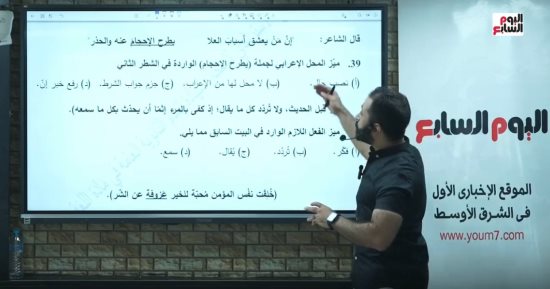 اليوم السابع
قال الشاعر: "إنّ مَنْ يعشق أسبابَ العلا يطرح الإحجامَ عنه والحذر"
39. ميّز المحل الإعرابي لجملة (يطرح الإحجام) الواردة في الشطر الثاني
(أ) نصب حال. (ب) لا محل لها من الإعراب. (ج) جزم جواب الشرط. (د) رفع خبر إنّ.
قبل الحديث، ولا تُردّد كل ما يقال؛ إذ كفى بالمرء إثمًا أن يحدّث بكل ما سمعه).
ميز الفعل اللازم الوارد في البيت السابق مما يلي.
(أ) فكّر. (ب) تُردّد. (ج) يُقال. (د) سمع.
(خُلقت نفْس المؤمن مُحبّة للخير عَزوفة عن الشر).
اليوم السابع
الموقع الإخبارى الأول
فى الشرق الأوسط
www.youm7.com